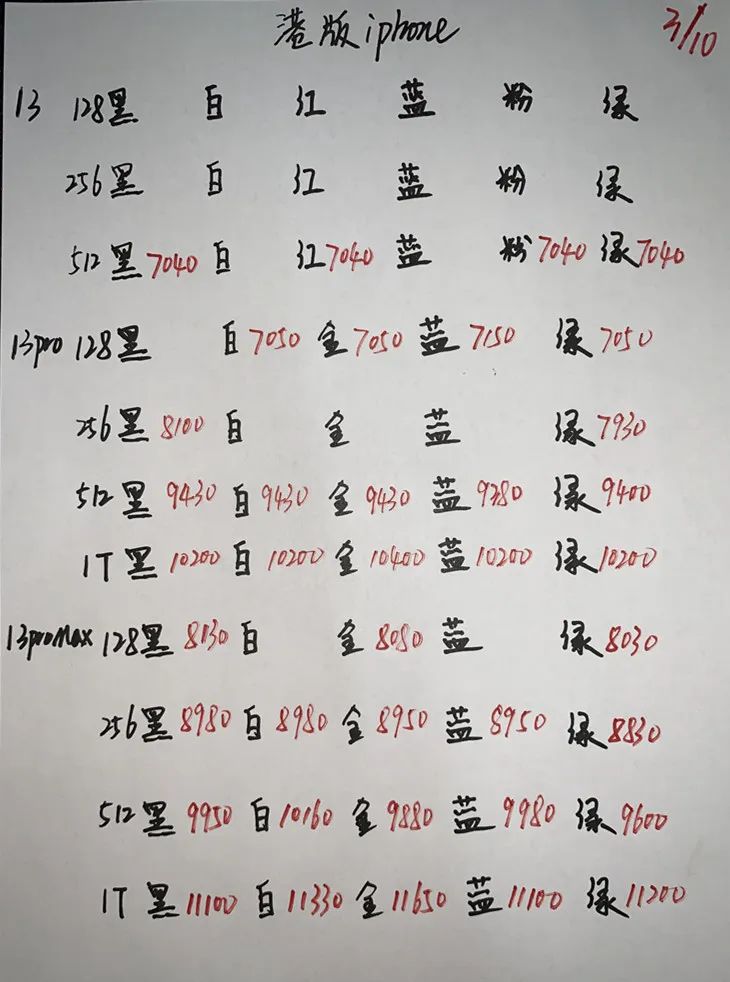 港版iphone 3/10
13 128黑 白 红 蓝 粉 绿
256黑 白 红 蓝 粉 绿
512黑7040 白 红7040 蓝 粉7040 绿7040
13pro 128黑 白7050 金7050 蓝7150 绿7050
256黑8100 白 金 蓝 绿7930
512黑9430 白9430 金9430 蓝9380 绿9400
1T黑10200 白10200 金10400 蓝10200 绿10200
13proMax 128黑8130 白 金8080 蓝 绿8030
256黑8980 白8980 金8950 蓝8950 绿8830
512黑9950 白10160 金9880 蓝9980 绿9600
1T黑11100 白11330 金11650 蓝11100 绿11200